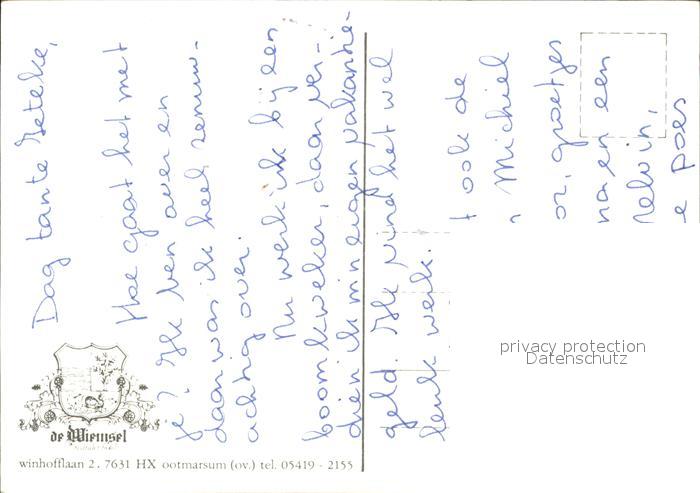 Dag tante Geteke,
Hoe gaat het met
je? Ik ben over en
daar was ik heel zenuw-
achtig over.
Nu werk ik bij een
boomkweker, daar ver-
dien ik m'n eigen vakantie-
geld. Ik vind het wel
leuk werk.
ook de
Michiel
or, groetjes
na en een
e poes
de Wiemsel
winhofflaan 2, 7631 HX ootmarsum (ov.) tel. 05419 - 2155
privacy protection
Datenschutz